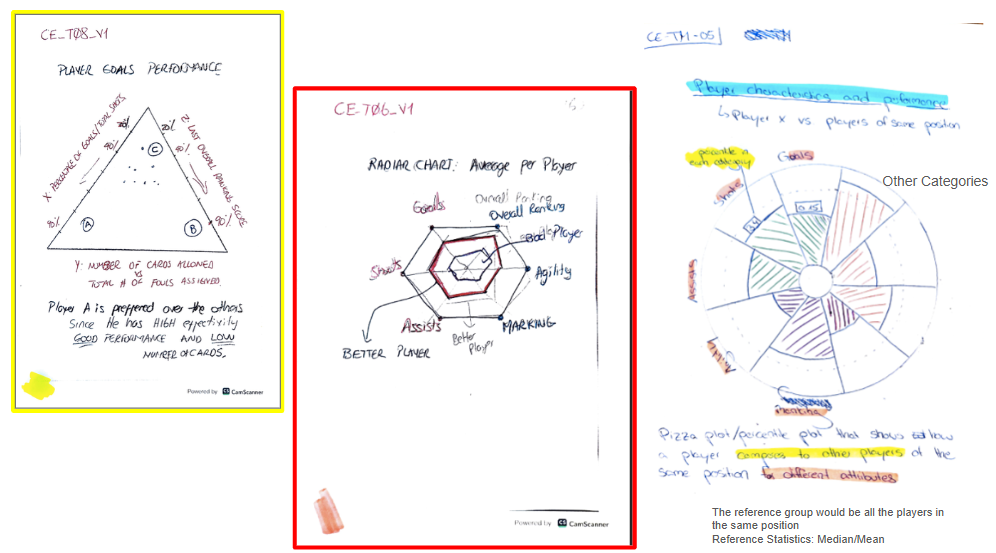 CE_TØ8_V1
PLAYER GOALS PERFORMANCE
X: PERCENTAGE OF GOALS/TOTAL SHOTS
Z: LAST OVERALL RANKING SCORE
20%
90%
90%
C
A
B
Y: NUMBER OF CARDS ALLOWED
VS
TOTAL # OF FOULS ASSIGNED
Player A is preffered over the others
Since He has HIGH effectivity
GOOD PERFORMANCE AND LOW
NUMBER OF CARDS.
Powered by CS CamScanner
CE_TØ6_V1
RADIAR CHART: Average per Player
Goals
Overall Ranking
Overall Ranking
Bad Player
Shoots
Agility
Assists
Better
Player
MARKING
BETTER PLAYER
Powered by CS CamScanner
CE-TM-05
Player characteristics and performance
↳ Player X vs players of same position
percentile in
each category
Goals
Other Categories
Shots
0.65
Assists
Agility
marking
Pizza plot/percentile plot that shows how
a player compares to other players of the
same position for different attributes
The reference group would be all the players in
the same position
Reference Statistics: Median/Mean